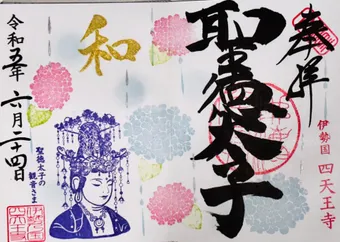 奉拝
伊勢国 四天王寺
聖徳太子
和
聖徳太子の
観音さま
令和五年 六月二十四日